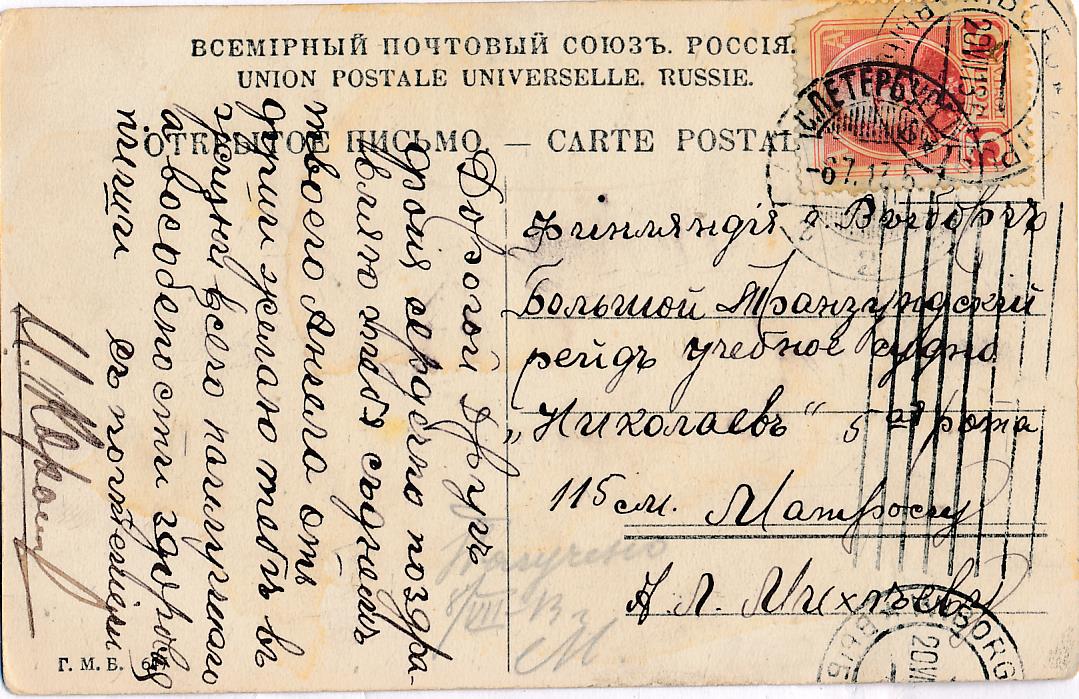 ВСЕМІРНЫЙ ПОЧТОВЫЙ СОЮЗЪ. РОССІЯ.
UNION POSTALE UNIVERSELLE. RUSSIE.
ОТКРЫТОЕ ПИСЬМО. — CARTE POSTAL
С.ПЕТЕРБУР
-6 7. 13. 5
20 VII 13
Финляндія г. Выборгъ
Большой Транзундскій
рейдъ учебное судно
„Николаевъ“ 5 ая рота
115 см. Матросу
А Л. Михлѣеву
Дорогой другъ
Фроня сердечно поздра
вляю тебя съ днемъ
твоего Ангела отъ
души желаю тебѣ въ
жизни всего наилучшего
а въ особености здоровья
пиши съ почтениемъ
Получено
8/VIII-13 г
М
Г. М. Б.
BORG
20 VII